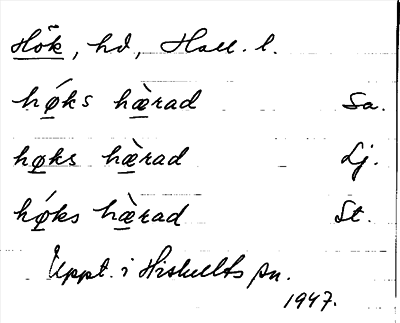 Hök, hd, Hall. l.
hǿks hæ̀rad Sa.
høks hæ̀rad Lj.
hǿks hæ̀rad St.
Uppt. i Hishults sn.
1947.